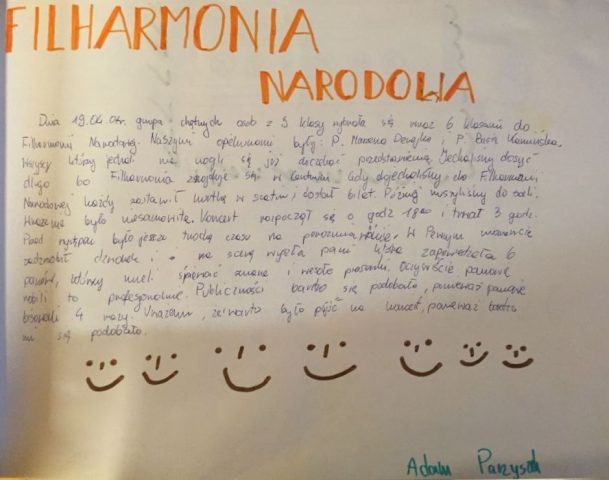 FILHARMONIA
NARODOWA
Dnia 19.04.04r. grupa chętnych osób z 5 klasy wybrała się wraz 6 klasami do
Filharmonii Narodowej. Naszymi opiekunami były: P. Marzena i P. Basia Kamińska.
Wszyscy którzy jechali nie mogli się już doczekać przedstawienia. Jechaliśmy dosyć
długo bo Filharmonia znajduje się w centrum. Gdy dojechaliśmy do Filharmonii
Narodowej każdy zostawił kurtkę w szatni i dostał bilet. Później weszliśmy do sali.
Wrażenie było niesamowite. Koncert rozpoczął się o godz 18:00 i trwał 3 godz.
Przed było jeszcze trochę czasu na W Pewnym momencie
zadzwonił dzwonek i na scenę wyszła pani która zapowiedziała 6
panów, którzy mieli śpiewać znane i wesołe piosenki. Oczywiście panowie
robili to profesjonalnie. Publiczności bardzo się podobało, ponieważ panowie
bisowali 4 razy. Uważam, że warto było pójść na koncert, ponieważ bardzo
mi się podobało.
Adam Parzyszek